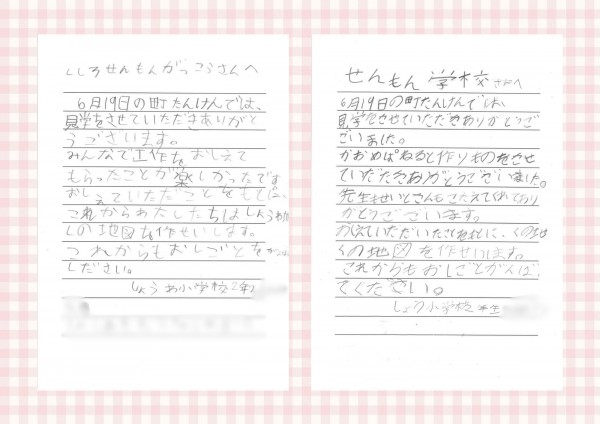 ししろせんもんがっこうさんへ
6月19日の町たんけんでは、
見学をさせていただきありがと
うございます。
みんなで工作をおしえて
もらったことが楽しかったです
おしえていただいことをもとに、
これからわたしたちはしょうわ
くの地図を作せいします。
これからもおしごとを
ください。
しょうわ小学校2年
せんもん学校さんへ
6月19日の町たんけんでは、
見学をさせていただきありがとうご
ございました。
かおめぱねると作りものをさせ
ていただきありがとうございました。
先生もせいとさんもこたえてくれてあり
がとうございます。
おしえていただいたことをもとに、くの地
くの地図を作せいします。
これからもおしごとがんば
てください。
しょう小学校